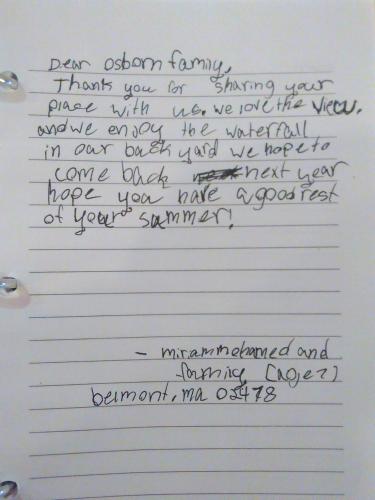 Dear osborn family,
Thank you for sharing your
place with us. we love the view.
and we enjoy the waterfall
in our back yard we hope to
come back next year
hope you have a good rest
of your summer!
- miram mohamed and
family (age 7)
belmont, ma 02478